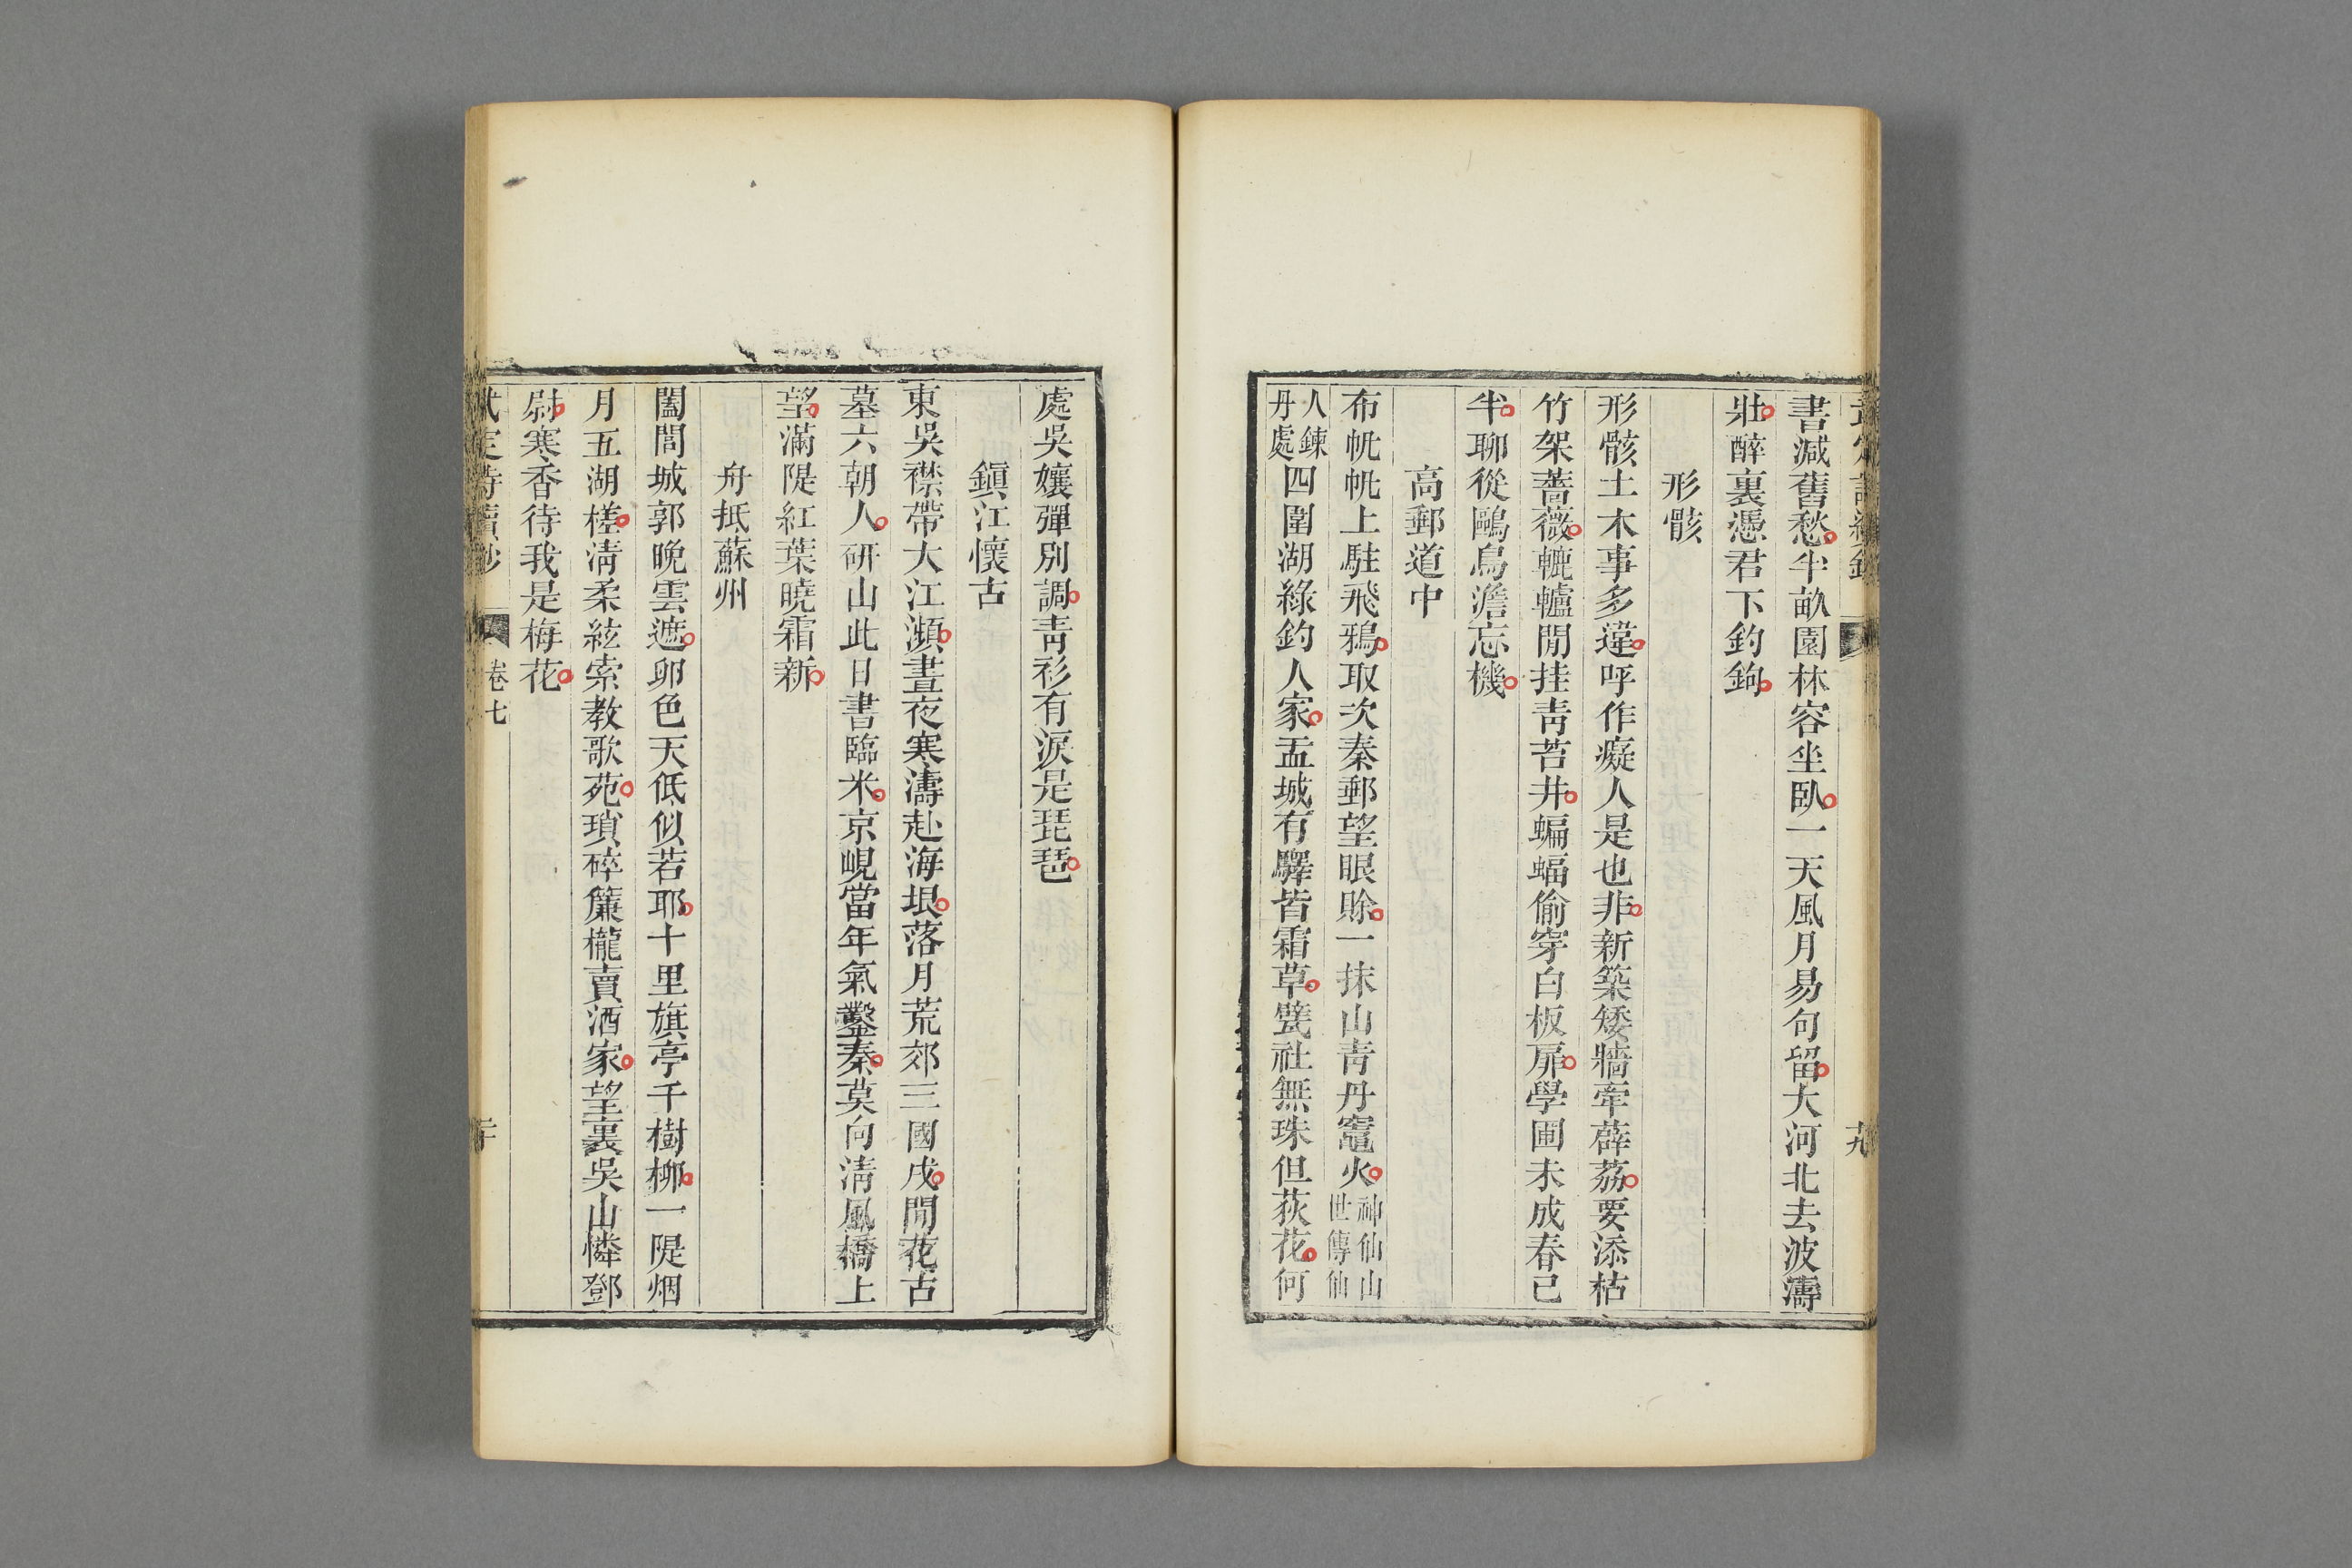 書減舊愁半畝園林容坐臥一天風月易句留大河北去波濤
壯醉裏憑君下釣鉤
形骸
形骸土木事多違呼作癡人是也非新築矮牆牽薜荔要添枯
竹架薔薇轆轤閒挂靑苔井蝙蝠偷穿白板扉學圃未成春已
半聊從鷗鳥澹忘機
高郵道中
布帆帆上駐飛鴉取次秦郵望眼賒一抹山靑丹竈火神仙山世傳仙
人鍊丹處四圍湖綠釣人家盂城有驛皆霜草甓社無珠但荻花何
十九
處吳孃彈別調靑衫有淚是琵琶
鎭江懷古
東吳襟帶大江瀕晝夜寒濤赴海垠落月荒郊三國戍閒花古
墓六朝人硏山此日書臨米京峴當年氣鑿秦莫向淸風橋上
望滿隄紅葉曉霜新
舟抵蘇州
闔閭城郭晚雲遮卵色天低似若耶十里旗亭千樹柳一隄烟
月五湖槎淸柔絃索教歌苑瑣碎簾櫳賣酒家望裏吳山憐鄧
尉寒香待我是梅花
武定詩續鈔 卷七